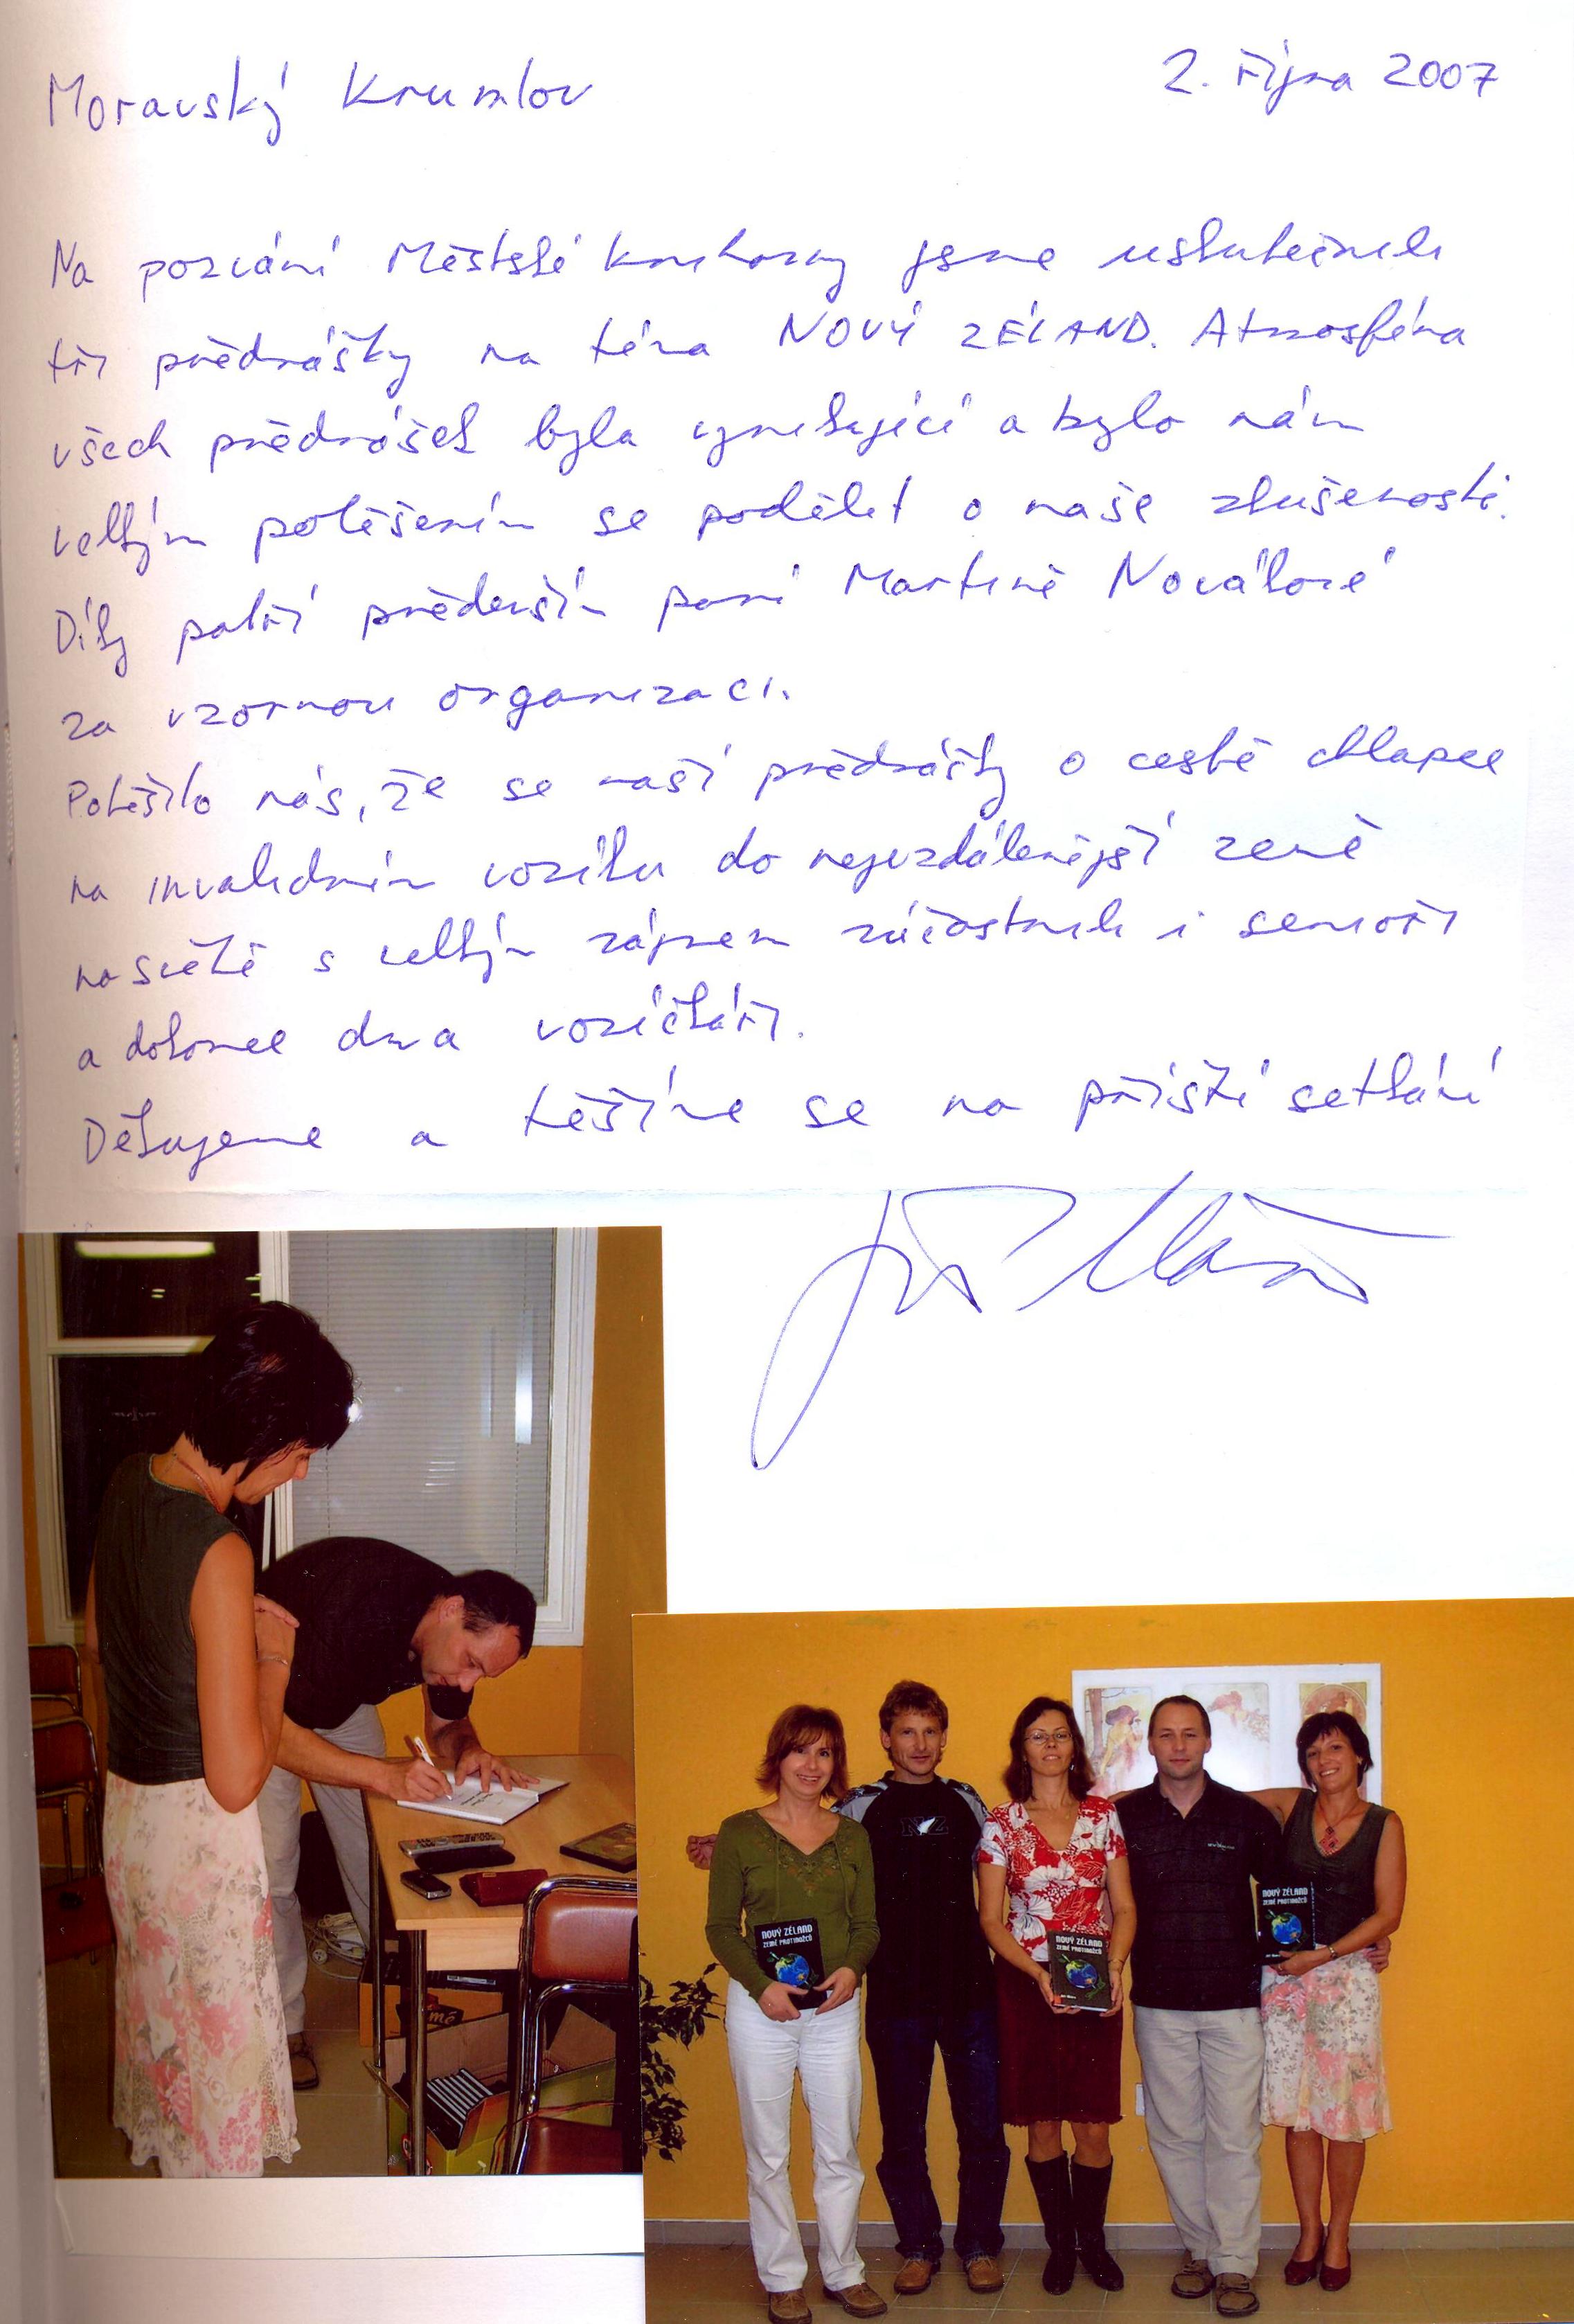 Moravský Krumlov
2. října 2007
Na pozvání Městské knihovny jsme uskutečnili
tři přednášky na téma NOVÝ ZÉLAND. Atmosféra
všech přednášek byla vynikající a bylo nám
velkým potěšením se podělit o naše zkušenosti.
Díky patří především paní Martině Novákové
za vzornou organizaci.
Potěšilo nás, že se naší přednášky o cestě chlapce
na invalidním vozíku do nejvzdálenější země
na světě s velkým zájmem zúčastnili i senioři
a dokonce dva vozíčkáři.
Děkujeme a těšíme se na příští setkání
NZ
NOVÝ ZÉLAND
ZEMĚ PROTINOŽCŮ
NOVÝ ZÉLAND
ZEMĚ PROTINOŽCŮ
NOVÝ ZÉLAND
ZEMĚ PROTINOŽCŮ